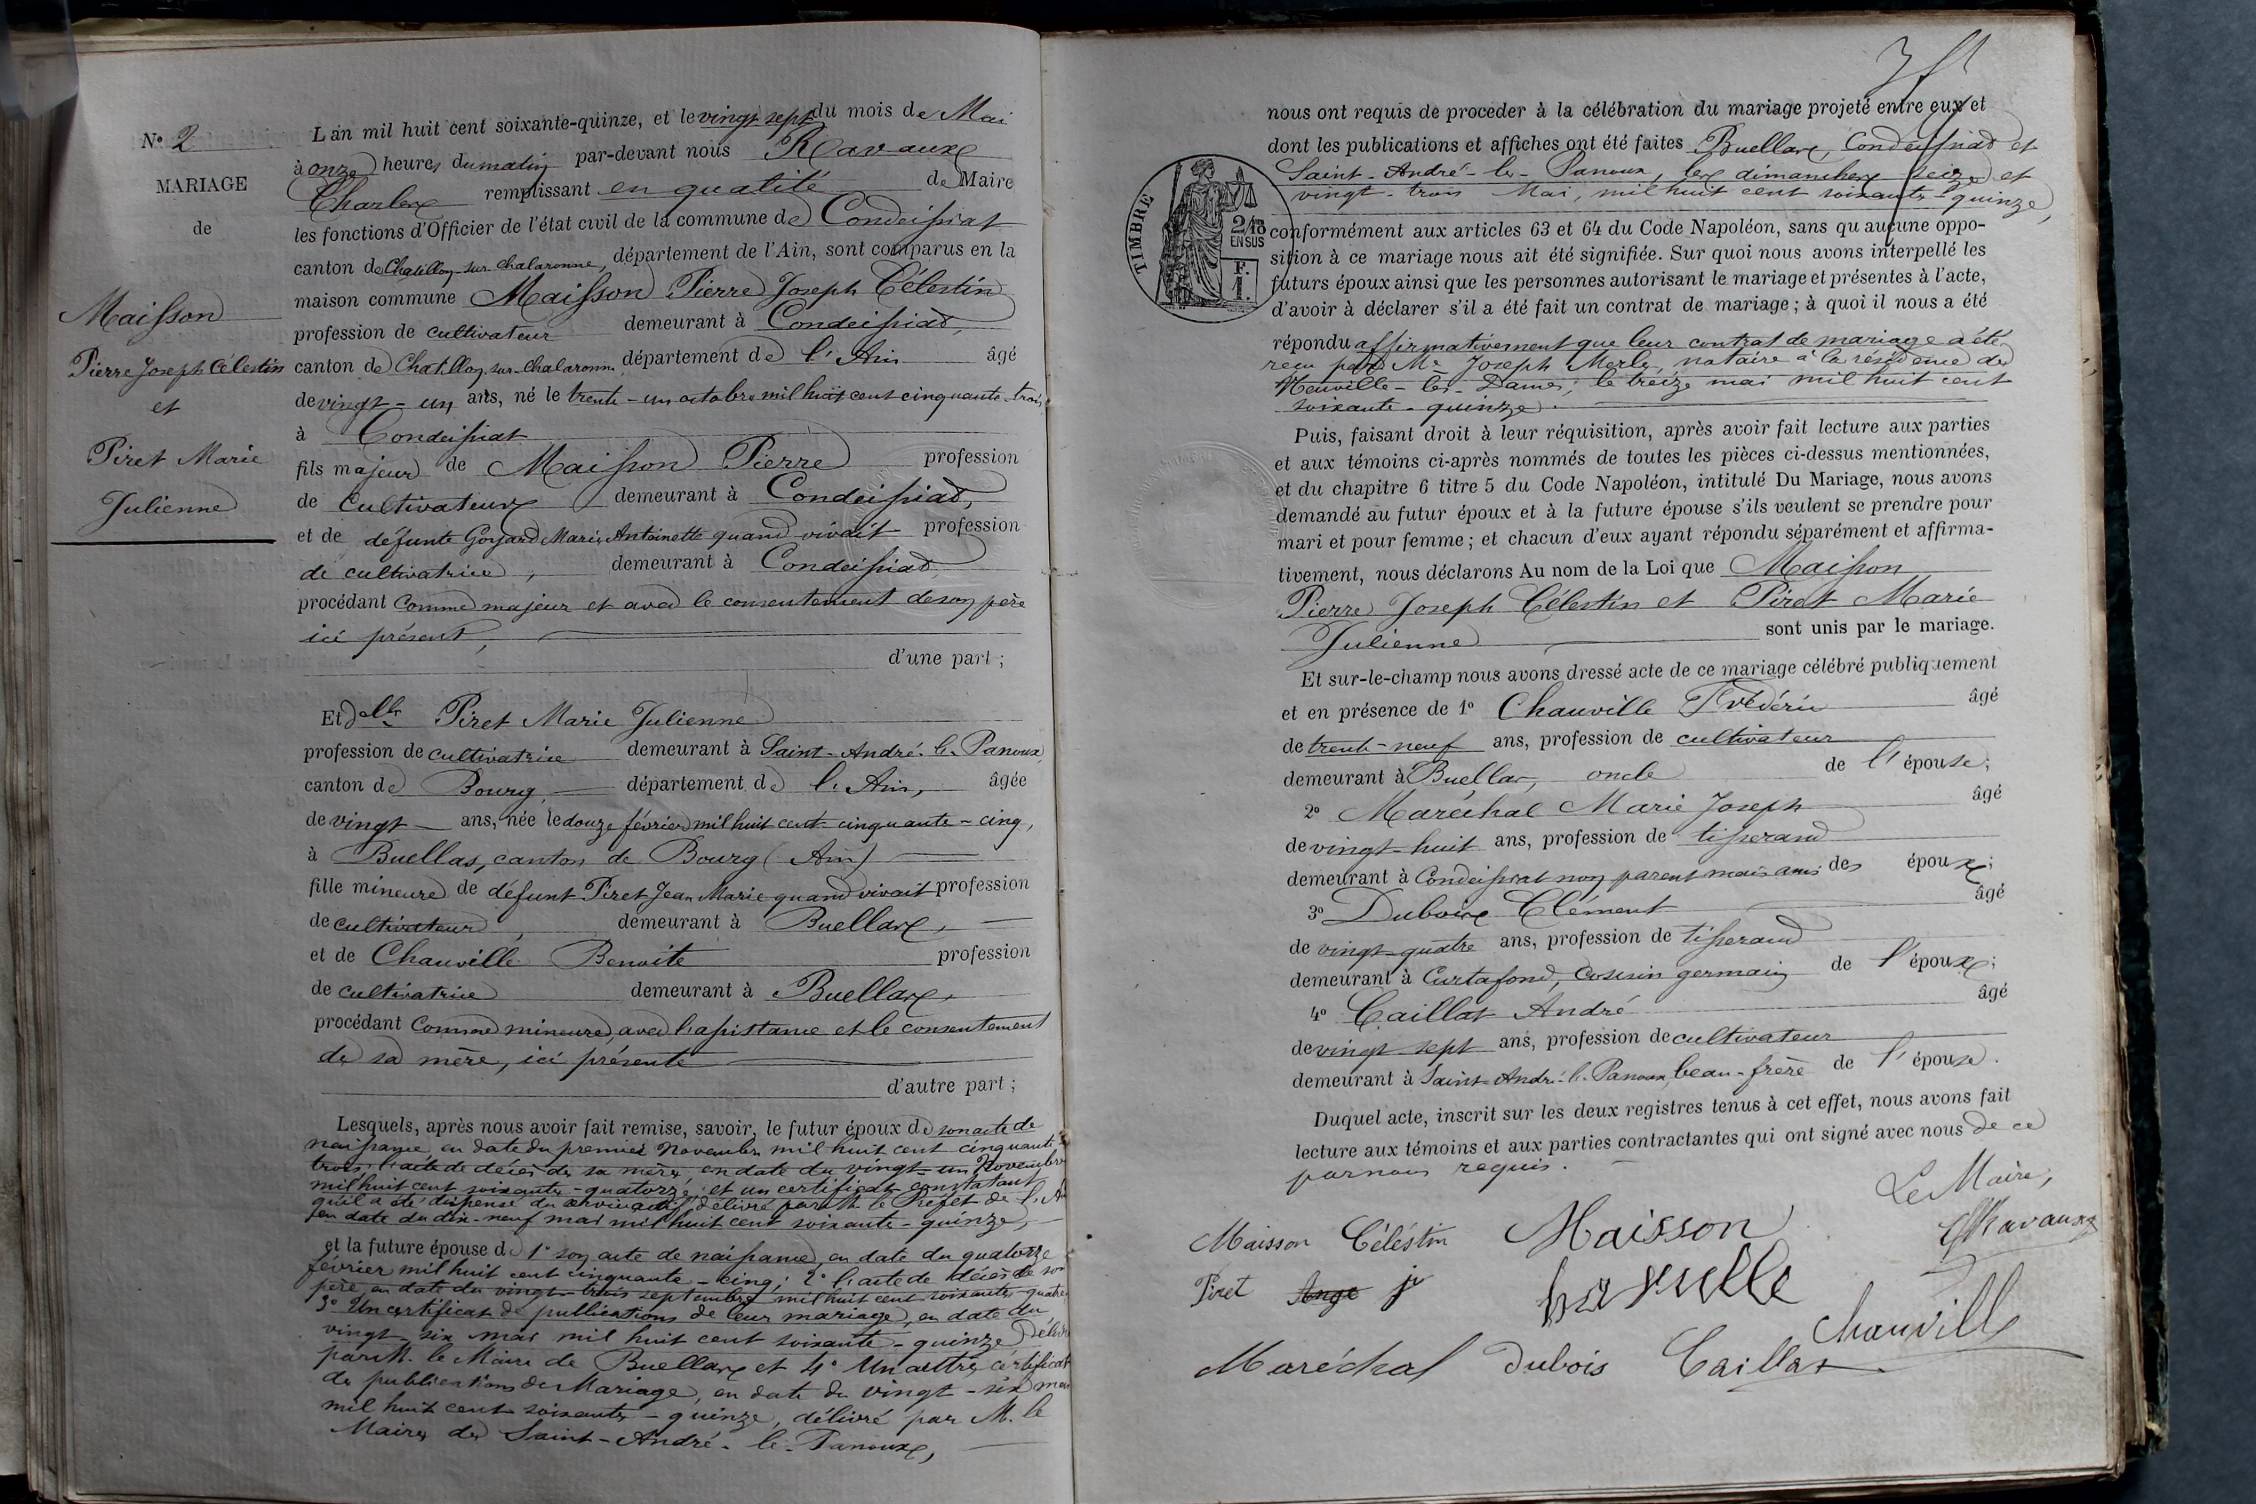 N° 2
MARIAGE
de
Maisson
Pierre Joseph Célestin
et
Piret Marie
Julienne
L'an mil huit cent soixante-quinze, et le vingt sept du mois de Mai
à onze heures du matin par-devant nous Ravaux
Charles remplissant en qualité de Maire
les fonctions d'Officier de l'état civil de la commune de Condeissiat
canton de Chatillon-sur-Chalaronne, département de l'Ain, sont comparus en la
maison commune Maisson Pierre Joseph Célestin
profession de cultivateur demeurant à Condeissiat,
canton de Chatillon-sur-Chalaronne, département de l'Ain âgé
de vingt-un ans, né le trente-un octobre mil huit cent cinquante-trois,
à Condeissiat
fils majeur de Maisson Pierre profession
de cultivateur demeurant à Condeissiat,
et de défunte Goyard Marie Antoinette quand vivait profession
de cultivatrice, demeurant à Condeissiat,
procédant comme majeur et avec le consentement de son père
ici présent,
d'une part;
Et delle Piret Marie Julienne
profession de cultivatrice demeurant à Saint-André-le-Panoux,
canton de Bourg, département de l'Ain, âgée
de vingt ans, née le douze février mil huit cent cinquante-cinq,
à Buellas, canton de Bourg (Ain)
fille mineure de défunt Piret Jean Marie quand vivait profession
de cultivateur, demeurant à Buellas,
et de Chauville Benoite profession
de cultivatrice demeurant à Buellas,
procédant comme mineure, avec l'assistance et le consentement
de sa mère, ici présente
d'autre part;
Lesquels, après nous avoir fait remise, savoir, le futur époux de son acte de
naissance, en date du premier Novembre mil huit cent cinquante
trois, l'acte de décès de sa mère en date du vingt-un Novembre
mil huit cent soixante-quatorze, et un certificat constatant
qu'il a été dispensé du service actif, délivré par M. le Préfet de l'Ain
en date du dix-neuf mai mil huit cent soixante-quinze,
et la future épouse de 1° son acte de naissance, en date du quatorze
février mil huit cent cinquante-cinq; 2° l'acte de décès de son
père, en date du vingt-trois septembre mil huit cent soixante-quatre
3° Un certificat de publications de leur mariage, en date du
vingt-six mai mil huit cent soixante-quinze délivré
par M. le Maire de Buellas et 4° Un autre certificat
de publications de Mariage, en date du vingt-six mai
mil huit cent soixante-quinze, délivré par M. le
Maire de Saint-André-le-Panoux,
nous ont requis de procéder à la célébration du mariage projeté entre eux et
dont les publications et affiches ont été faites Buellas, Condeissiat et
Saint-André-le-Panoux, les dimanches seize et
vingt-trois Mai, mil huit cent soixante-quinze,
TIMBRE
2/10
EN SUS
F.
1.
conformément aux articles 63 et 64 du Code Napoléon, sans qu'aucune oppo-
sition à ce mariage nous ait été signifiée. Sur quoi nous avons interpellé les
futurs époux ainsi que les personnes autorisant le mariage et présentes à l'acte,
d'avoir à déclarer s'il a été fait un contrat de mariage; à quoi il nous a été
répondu affirmativement que leur contrat de mariage a été
reçu par Me Joseph Merle, notaire à la résidence de
Neuville-les-Dames, le treize mai mil huit cent
soixante-quinze.
Puis, faisant droit à leur réquisition, après avoir fait lecture aux parties
et aux témoins ci-après nommés de toutes les pièces ci-dessus mentionnées,
et du chapitre 6 titre 5 du Code Napoléon, intitulé Du Mariage, nous avons
demandé au futur époux et à la future épouse s'ils veulent se prendre pour
mari et pour femme; et chacun d'eux ayant répondu séparément et affirma-
tivement, nous déclarons Au nom de la Loi que Maisson
Pierre Joseph Célestin et Piret Marie
Julienne sont unis par le mariage.
Et sur-le-champ nous avons dressé acte de ce mariage célébré publiquement
et en présence de 1° Chauville Frédéric âgé
de trente-neuf ans, profession de cultivateur
demeurant à Buellas, oncle de l'épouse;
2° Maréchal Marie Joseph âgé
de vingt-huit ans, profession de tisserand
demeurant à Condeissiat non parent mais ami des époux;
3° Dubois Clément âgé
de vingt-quatre ans, profession de tisserand
demeurant à Curtafond, cousin germain de l'époux;
4° Caillat André âgé
de vingt sept ans, profession de cultivateur
demeurant à Saint-André-le-Panoux, beau-frère de l'épouse.
Duquel acte, inscrit sur les deux registres tenus à cet effet, nous avons fait
lecture aux témoins et aux parties contractantes qui ont signé avec nous de ce
par nous requis.
Le Maire,
Maisson Célestin Maisson Ravaux
Piret Ange j
Chauville
Maréchal Dubois Caillat